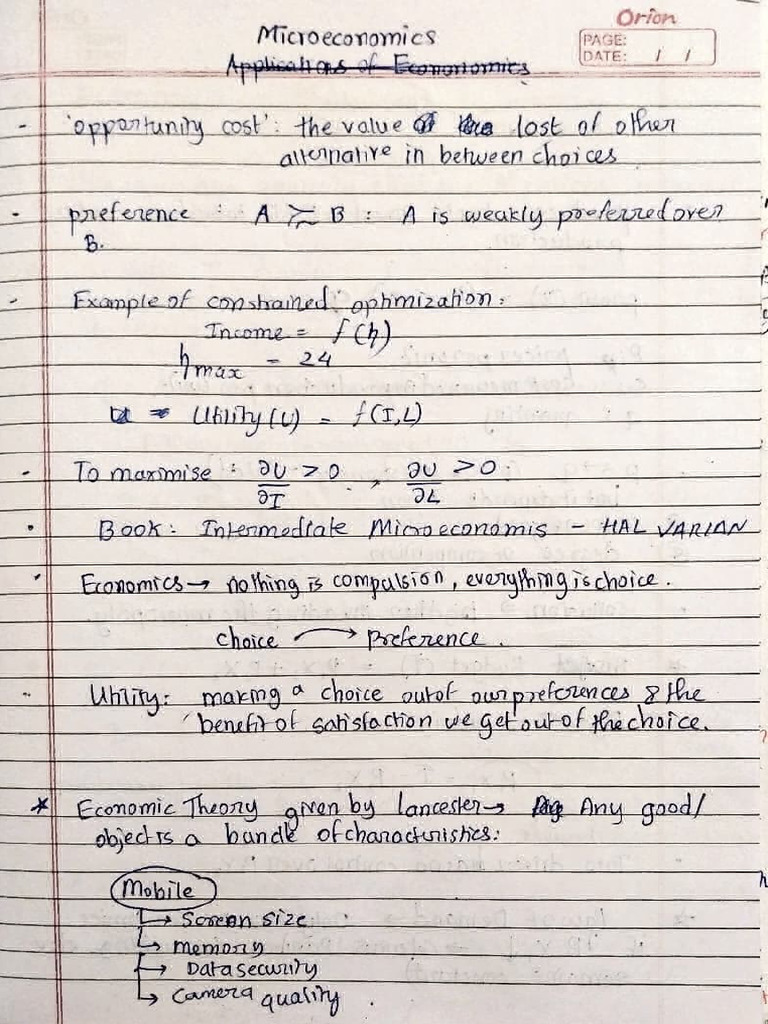 Orion
Microeconomics
PAGE:
DATE: / /
Applications of Econonomics
- 'opportunity cost': the value of the lost of other
alternative in between choices
- preference : A ≿ B : A is weakly preferred over
B.
- Example of constrained optimization:
Income = f(h)
hmax = 24
U = Utility (U) = f(I,L)
- To maximise : ∂U/∂I > 0 , ∂U/∂L > 0
• Book: Intermediate Microeconomis - HAL VARIAN
• Economics → nothing is compulsion, everything is choice.
choice → Preference.
- Utility: making a choice out of our preferences & the
benefit of satisfaction we get out of the choice.
* Economic Theory given by Lancester → Any good/
object is a bundle of characteristics:
Mobile
→ Screen size
→ memory
→ Data security
→ Camera quality